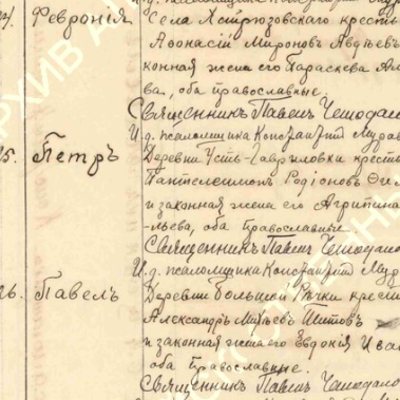 Февронія
Села Ястрюзовскаго кресть
Афонасій Мироновъ Авдѣевъ
конная жена его Параскева
ва, оба православные.
Священникъ Павелъ Чемодано
И. д. псаломщика Константинъ Мурав
25. Петръ
Деревни Усть-Гавриловки кресть
Пантелеимонъ Родіоновъ
и законная жена его Агрипина
льева, оба православные
Священникъ Павелъ Чемодано
И. д. псаломщика Константинъ Мур
26. Павелъ
Деревни Большой Рѣчки кресть
Александръ Титовъ
и законная жена его Евдокія Ива
оба православные.
Священникъ Павелъ Чемодано